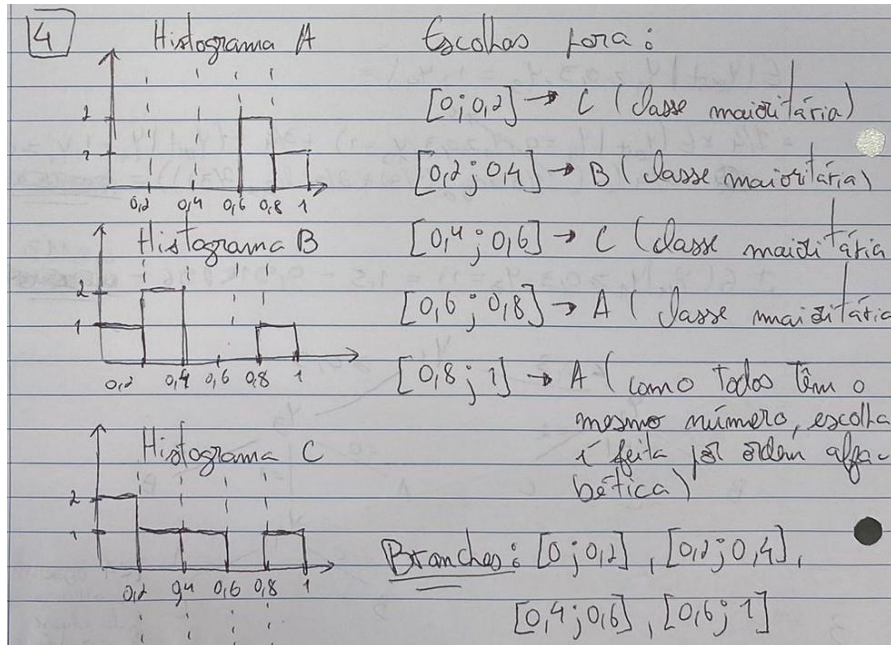 4
Histograma A
2
1
0,2 0,4 0,6 0,8 1
Histograma B
2
1
0,2 0,4 0,6 0,8 1
Histograma C
2
1
0,2 0,4 0,6 0,8 1
Escolhas para:
[0;0,2] → C (classe maioritária)
[0,2;0,4] → B (classe maioritária)
[0,4;0,6] → C (classe maioritária
[0,6;0,8] → A (classe maioritária
[0,8;1] → A (como todos têm o
mesmo número, escolha
é feita por ordem alfa-
bética)
Branches: [0;0,2], [0,2;0,4],
[0,4;0,6], [0,6;1]